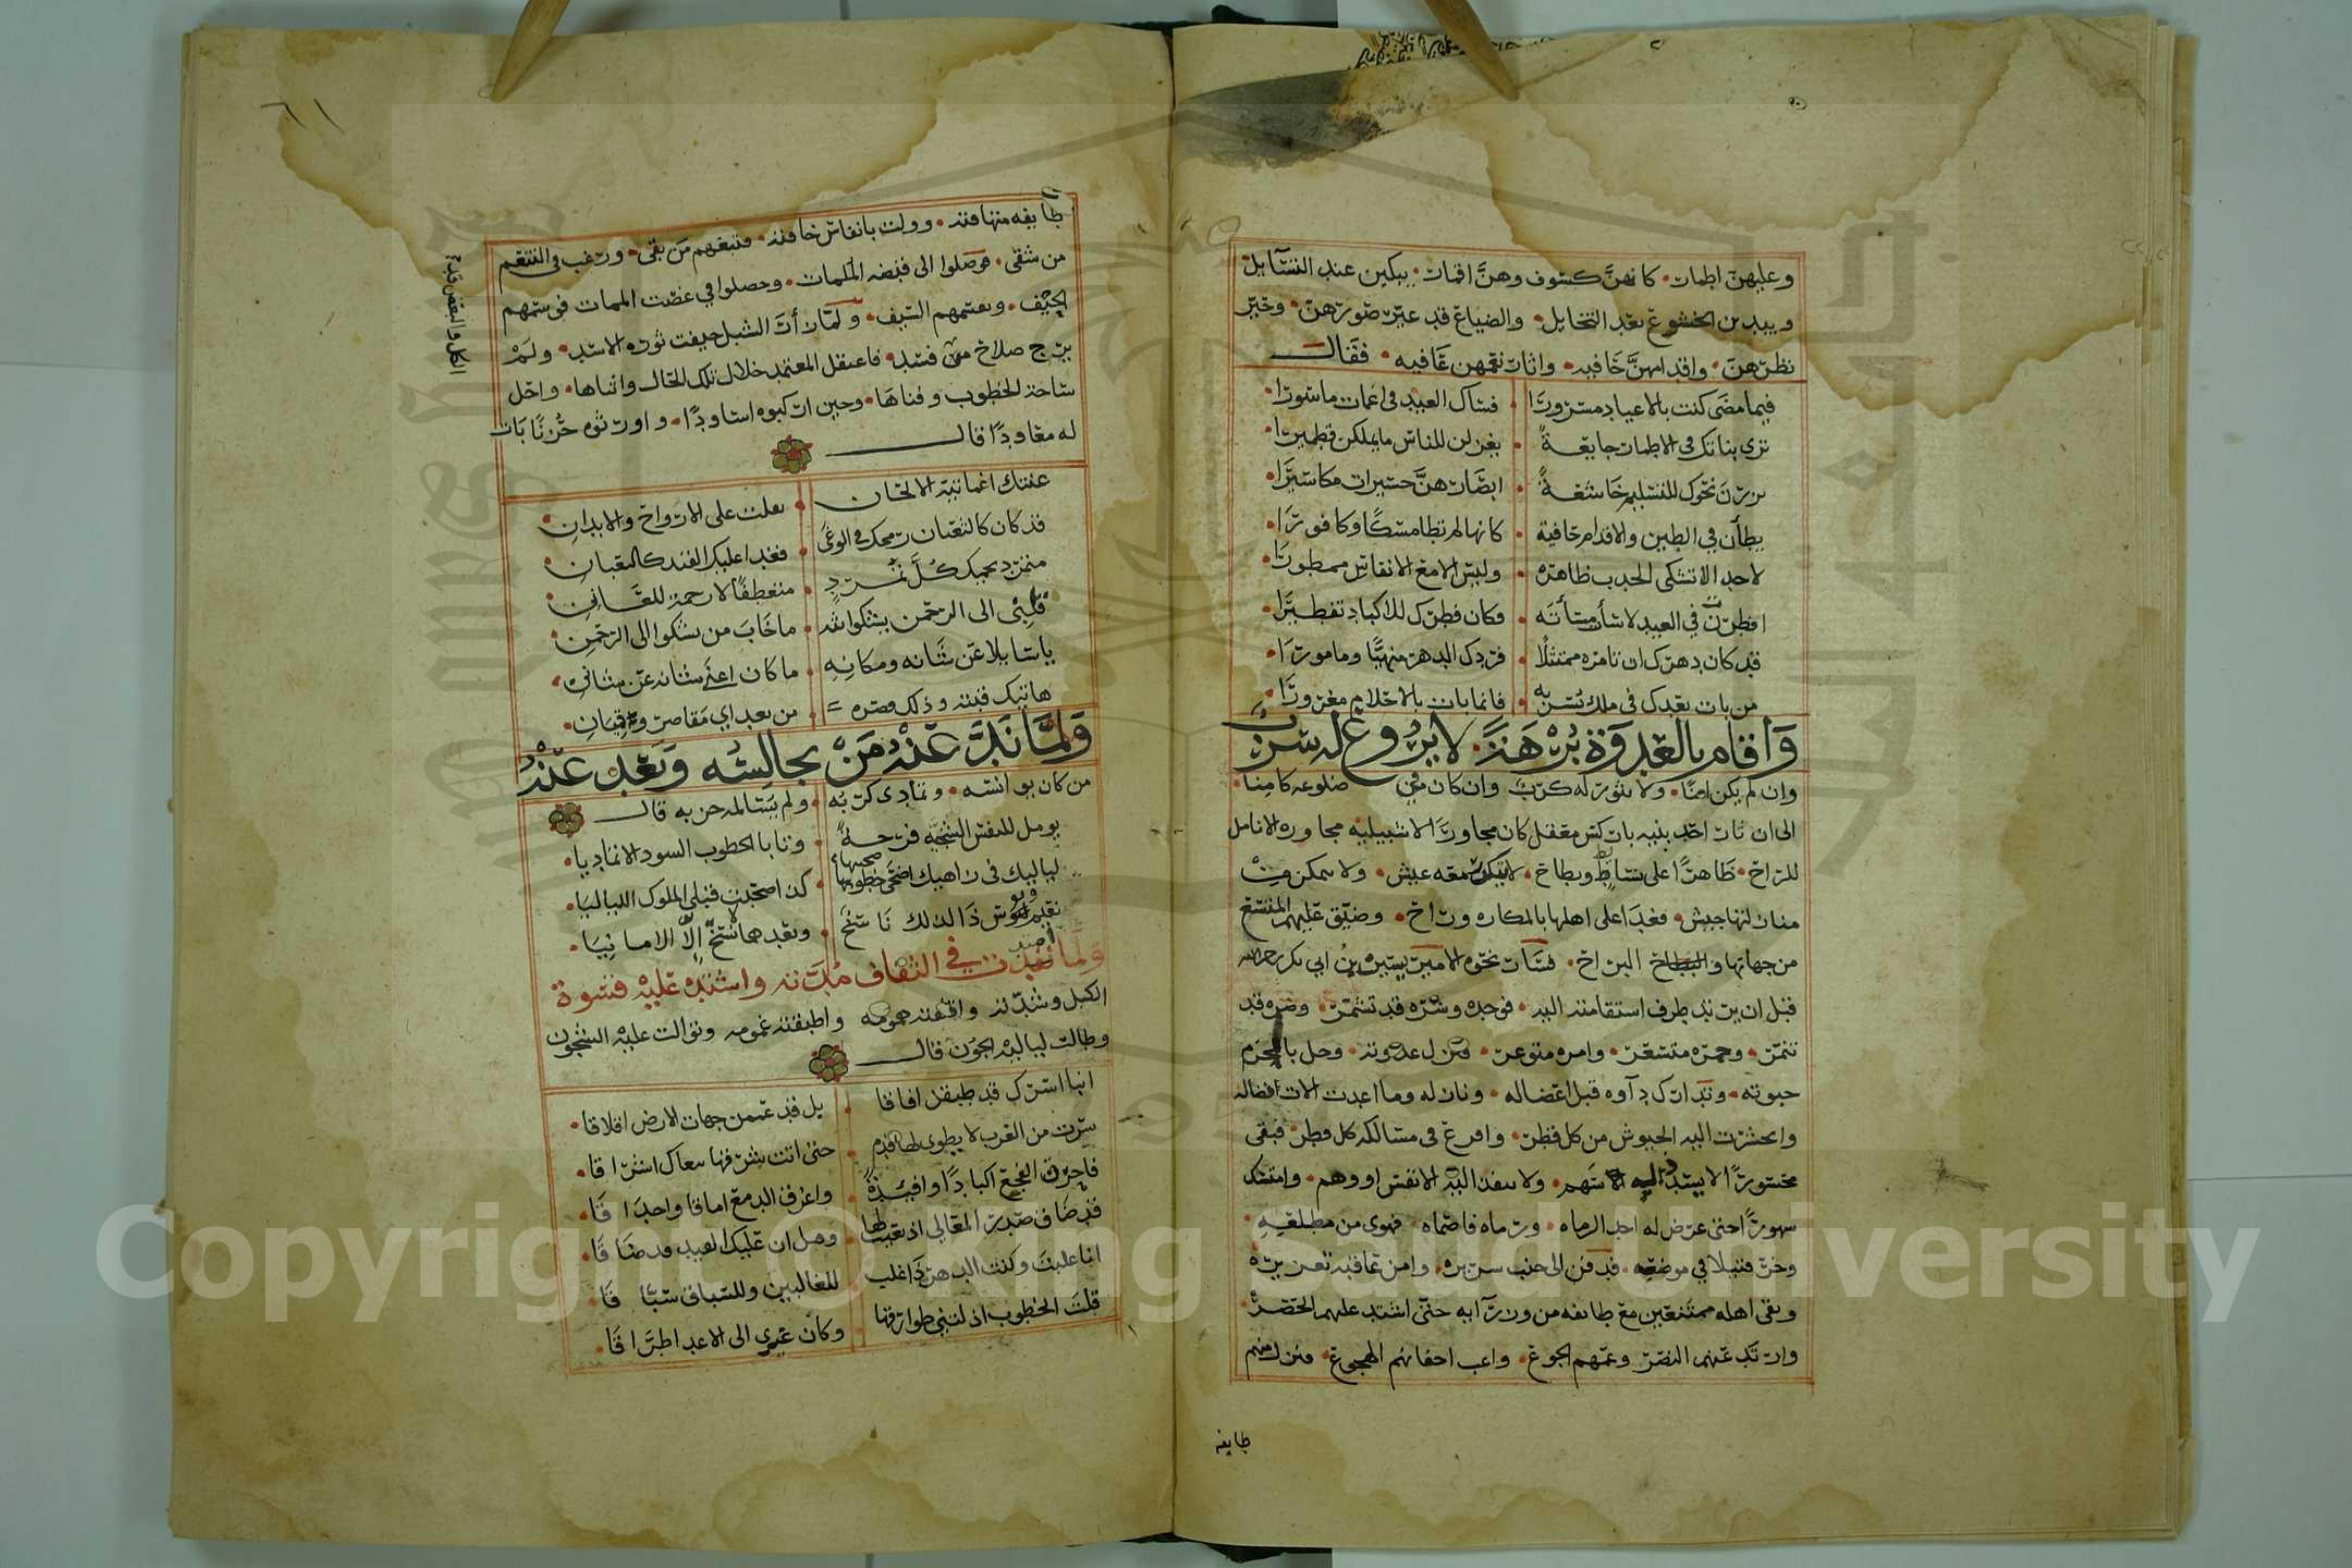 وعليهن اطمار • كانهن كسوف وهن اقمار • يبكين عند التسايل
ويبدين الخشوع بعد التخايل • والضياع قد غير صورهن • وحير
نظرهن • واقدامهن حافيه • واثار نعمهن عافيه • فقال
فيما مضى كنت بالاعياد مسرورا • فساك العيد في اغمات ماسورا
ترى بناتك في الاطمار جايعة • يغزلن للناس مايملكن قطميرا
برزن نحوك للتسليم خاشعة • ابصارهن حسيرات مكاسيرا
يطأن في الطين والاقدام حافية • كانها لم تطا مسكا وكافورا
لاخد الا تشكى الجدب ظاهره • وليس الا مع الانفاس ممطورا
افطرت في العيد لا سأت مسأته • وكان فطرك للاكباد تفطيرا
قد كان دهرك ان تامره ممتثلا • فردك الدهر منهيا ومامورا
من بات بعدك في ملك يسر به • فانما بات بالاحلام مغرورا
وأقام بالعدوة برهة • لا يروع له سرب
وان لم يكن امنا • ولا يثور له كرب وان كان في ضلوعه كامنا •
الى ان ثار احد بنيه باركش معقل كان مجاورا لاشبيلية مجاورة الانامل
للراح • ظاهرا على بسايط وبطاح • لا يمكن معه عيش • ولا يتمكن من
منازلتها جيش • فغدا على اهلها بالمكاره وراح • وضيق عليهم المتسع
من جهاتها والبراح • فسار نحوه الامير سير بن ابي بكر رحمه الله
قبل ان يرتد طرف استقامته اليه • فوجده وشره قد تشمر • وضره قد
تنمر • وجمره متسعر • وامره متوعر • فنزل عدوته • وحل بالحزم
حبوته • وتدارك داوه قبل اعضاله • ونازله وما اعدت الات افضاله
وانحشرت اليه الجيوش من كل قطر • وافرغ في مسالكه كل قطر • فبقى
محسورا لا يشد اليه الا سهم • ولا ينفد اليه الا نفس او وهم • وامتسك
شهورا حتى عرض له احد الرماه • ورماه فاصماه فهوى من مطلعه •
وخر قتيلا في موضعه • فدفن الى جنب سريره • وامن عاقبة تعزيره
وبقى اهله ممتنعين مع طايفه من وزرآيه حتى اشتد عليهم الحصر
وارتد عنهم النصر وعمهم الجوع • واغب اجفانهم الهجوع • فنزل منهم
طايفه
٦١
طايفه متهافته • وولت بانفاس خافته • فتبعهم من بقى • ورغب في التنعم
من شقى • فوصلوا الى قبضه الملمات • وحصلوا في غصت الممات فوسمهم
الحيف • وعمهم السيف • ولما زأر الشبل خيفت ثورة الاسد • ولم
يرج صلاح من فسد • فاعتقل المعتمد خلال تلك الحال واثناها • واحل
ساحة الخطوب وفناها • وحين اركبوه اساودا • واورثوه حزنا بات
له معاودا قال
الكل والبعض قد
غنتك اغمانية الالحان • ثقلت على الارواح والابدان
قد كان كالثعبان رمحك في الوغى • فغدا عليك القيد كالثعبان
متمردا يحميك كل تمرد • متعطفا لا رحمة للعاني
قلبي الى الرحمن يشكوا بثه • ما خاب من يشكوا الى الرحمن
يا سايلا عن شانه ومكانه • ما كان اغنى شانه عن شاني
هاتيك قينته وذلك قصره • من بعد اي مقاصر وقيان
ولما نقد عنه من يجالسه وبعد عنه
من كان يوانسه • وتمادى كربه • ولم يسالمه حربه قال
يومل للنفس الشجيه فرحة • وتابا الخطوب السود الا تماديا
لياليك في زاهيك اصفى صحبتها • كذا صحبت قبلي الملوك اللياليا
نعيم وبوس ذا لذلك ناسخ • وبعدهما نسخ إلا الامانيا
ولما امتدت في الثقاف مدته واشتدت عليه قسوة
الكبل وشدته واقلقته همومه واطبقته غمومه وتوالت عليه الشجون
وطالت لياليه الجون قال
انبا اسرك قد طبقن افاقا • بل قد عممن جهات الارض اقلاقا
سرت من الغرب لا يطوى لها قدم • حتى اتت شرقها ينعاك اشراقا
فاحرق الفجع اكبادا وافيدة • واغرق الدمع اماقا واحداقا
قد ضاق صدر المعالي اذ نعيت لها • وقيل ان عليك القيد قد ضاقا
انا غلبت وكنت الدهر ذا غلب • للغالبين وللسباق سباقا
قلت الخطوب اذلتني طوارقها • وكان عزمي الى الاعدا طراقا